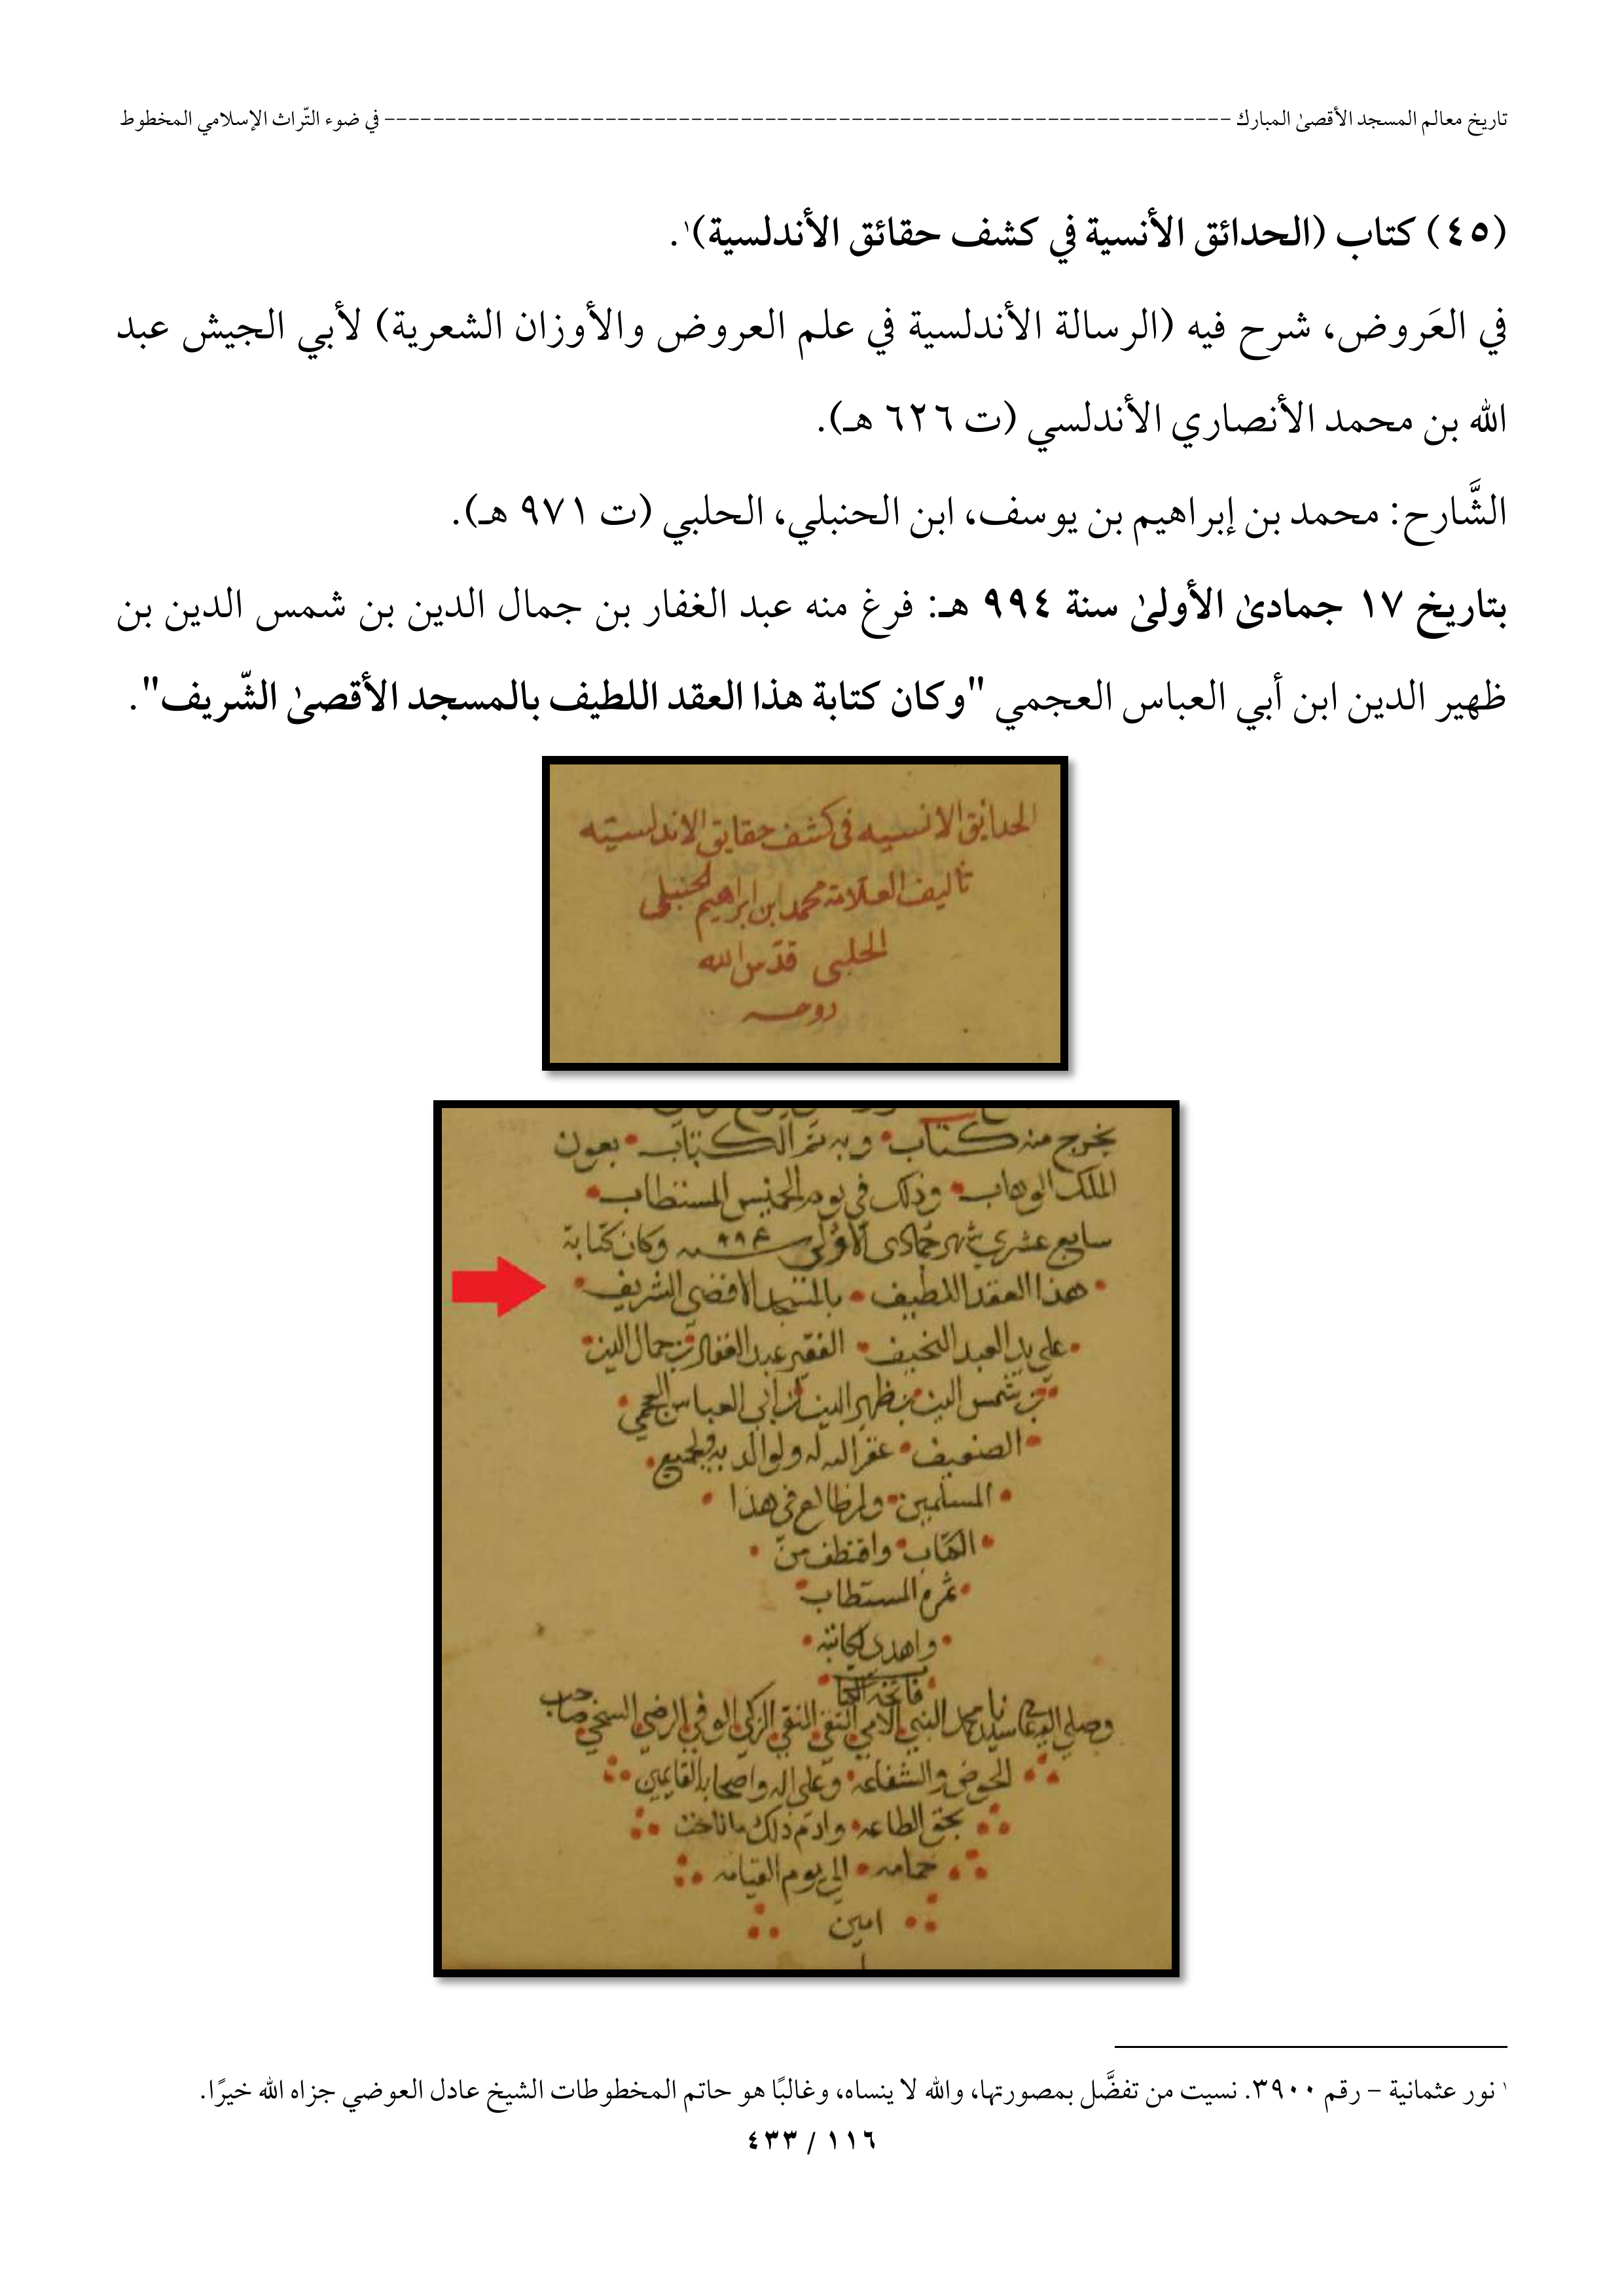 تاريخ معالم المسجد الأقصىٰ المبارك ---------------------------------------------------------------------- في ضوء التّراث الإسلامي المخطوط
(٤٥) كتاب (الحدائق الأنسية في كشف حقائق الأندلسية)١.
في العَروض، شرح فيه (الرسالة الأندلسية في علم العروض والأوزان الشعرية) لأبي الجيش عبد
الله بن محمد الأنصاري الأندلسي (ت ٦٢٦ هـ).
الشَّارح: محمد بن إبراهيم بن يوسف، ابن الحنبلي، الحلبي (ت ٩٧١ هـ).
بتاريخ ١٧ جمادىٰ الأولىٰ سنة ٩٩٤ هـ: فرغ منه عبد الغفار بن جمال الدين بن شمس الدين بن
ظهير الدين ابن أبي العباس العجمي "وكان كتابة هذا العقد اللطيف بالمسجد الأقصىٰ الشّريف".
الحدايق الانسيه في كشف حقايق الاندلسيه
تاليف العلامة محمد بن ابراهيم الحنبلي
الحلبي قدس الله
روحه
يخرج منه كتاب وبه تم الكتاب بعون
الملك الوهاب وذلك في يوم الخميس المستطاب
سابع عشري شهر جمادى الأولى سنه ٩٩٤ وكان كتابة
هذا العقد اللطيف بالمسجد الاقصى الشريف
على يد العبد النحيف الفقير عبد الغفار بن جمال الدين
بن شمس الدين بن ظهير الدين بن ابي العباس العجمي
الضعيف غفر الله له ولوالديه ولجميع
المسلمين ولمن طالع في هذا
الكتاب واقتطف من
ثمره المستطاب
واهدى لكاتبه
فاتحة الكتاب
وصلى الله على سيدنا محمد النبي الامي التقي النقي الزكي الوفي الرضي السخي صاحب
الحوض والشفاعه وعلى اله واصحابه القايمين
بحق الطاعه وادم ذلك ما ناحت
حمامه الى يوم القيامه
امين
١ نور عثمانية – رقم ٣٩٠٠. نسيت من تفضَّل بمصورتها، والله لا ينساه، وغالبًا هو حاتم المخطوطات الشيخ عادل العوضي جزاه الله خيرًا.
١١٦ / ٤٣٣